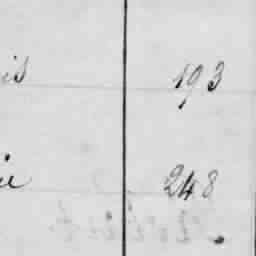 is 193
ie 248